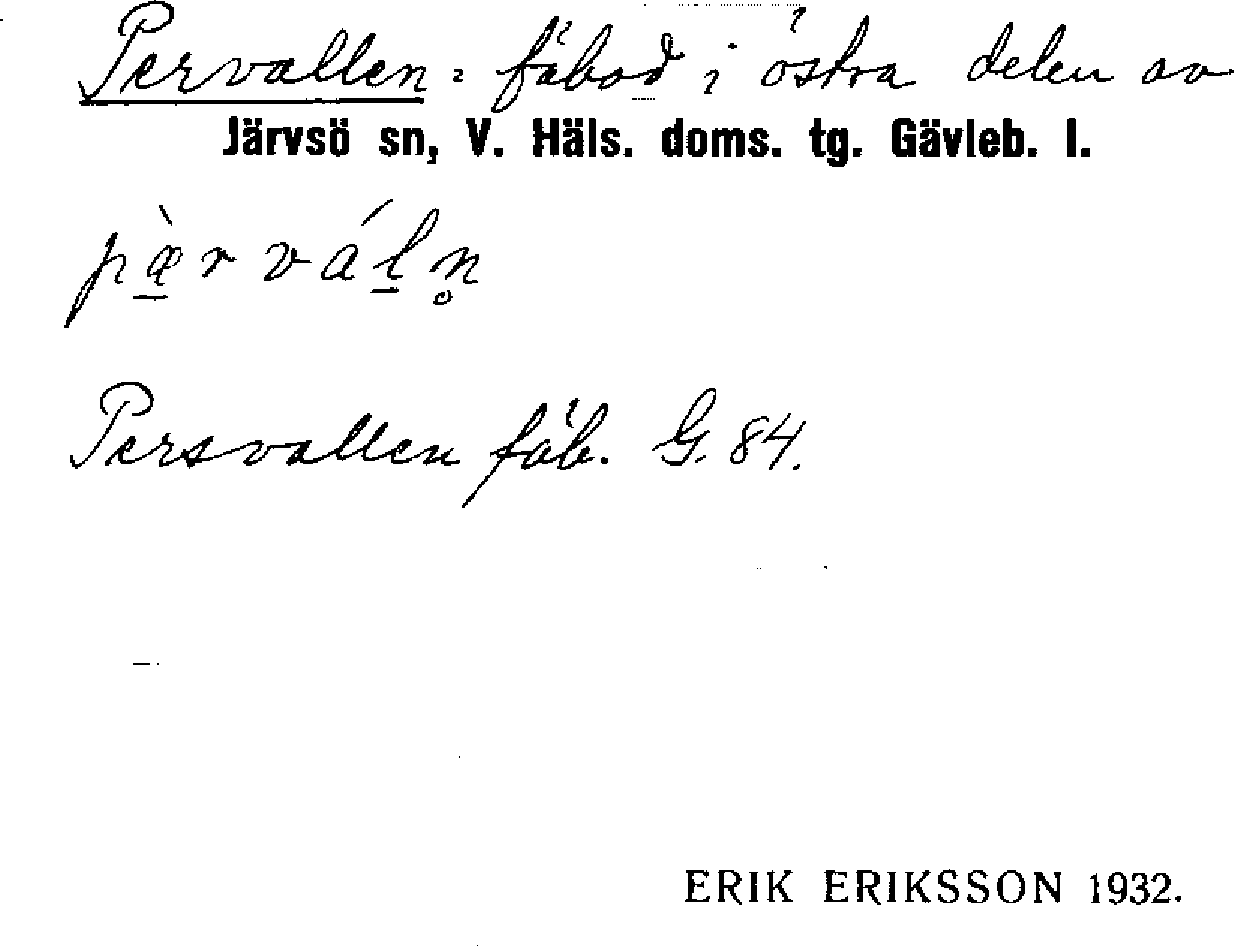 Pervallen = fäbod i östra delen av
Järvsö sn, V. Häls. doms. tg. Gävleb. l.
pæ̱̀rváḻn̥
Persvallen fäb. G. 84.
ERIK ERIKSSON 1932.